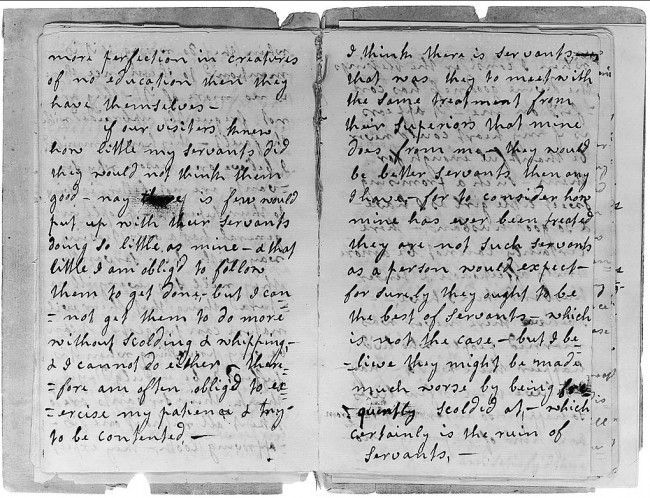 more perfection in creatures
of no education then they
have themselves –
if our visiters knew
how little my servants did
they would not think them
good – nay is few would
put up with their servants
doing so little as mine – & that
little I am oblig'd to follow
them to get done, but I can
- not get them to do more
without scolding & whipping –
& I cannot do either, there=
=fore am often oblig'd to ex=
=ercise my patience & try
to be contented –
I think there is servants
that was they to meet with
the same treatment from
their superiors that mine
does from me – they would
be better servants then any
I have – for to consider how
mine has ever been treated
they are not such servants
as a person would expect –
for surely they ought to be
the best of servants – which
is not the case – but I be
=lieve they might be made
much worse by being fre=
quently scolded at – which
certainly is the ruin of
servants, –